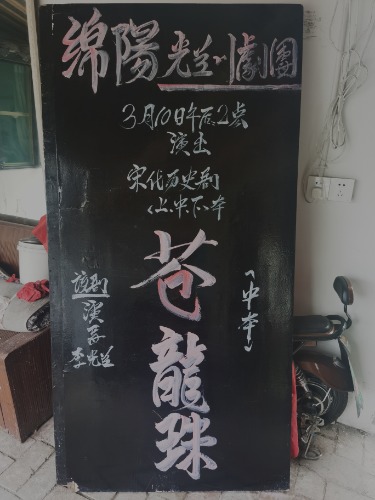 綿陽光兰川劇團
3月10日午后2点
演出
宋代历史剧
《上.中.下》本
苍龍珠
《中本》
该剧
演员
李光兰